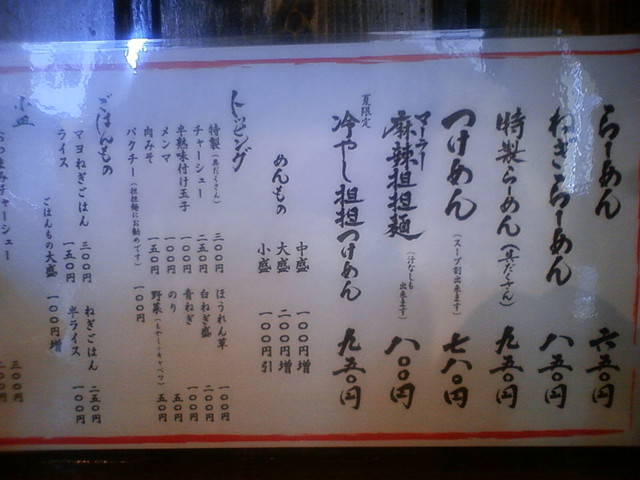 らーめん 六五〇円
ねぎらーめん 八五〇円
特製らーめん（具だくさん） 九五〇円
つけめん（スープ割出来ます） 七八〇円
麻辣担担麺（汁なしも出来ます） 八〇〇円
マーラー
夏限定
冷やし担担つけめん 九五〇円
めんもの
中盛 一〇〇円増
大盛 二〇〇円増
小盛 一〇〇円引
トッピング
特製（具だくさん） 三〇〇円
チャーシュー 二五〇円
半熟味付け玉子 一〇〇円
メンマ 一〇〇円
肉みそ 一五〇円
パクチー（担担麺にお勧めです） 一〇〇円
ほうれん草 一〇〇円
白ねぎ盛 二〇〇円
青ねぎ 一〇〇円
のり 五〇円
野菜（もやし・キャベツ） 五〇円
ごはんもの
マヨねぎごはん 三〇〇円
ライス 一五〇円
ごはんもの大盛 一〇〇円増
ねぎごはん 二五〇円
半ライス 一〇〇円
小皿
おつまみチャーシュー 三〇〇円